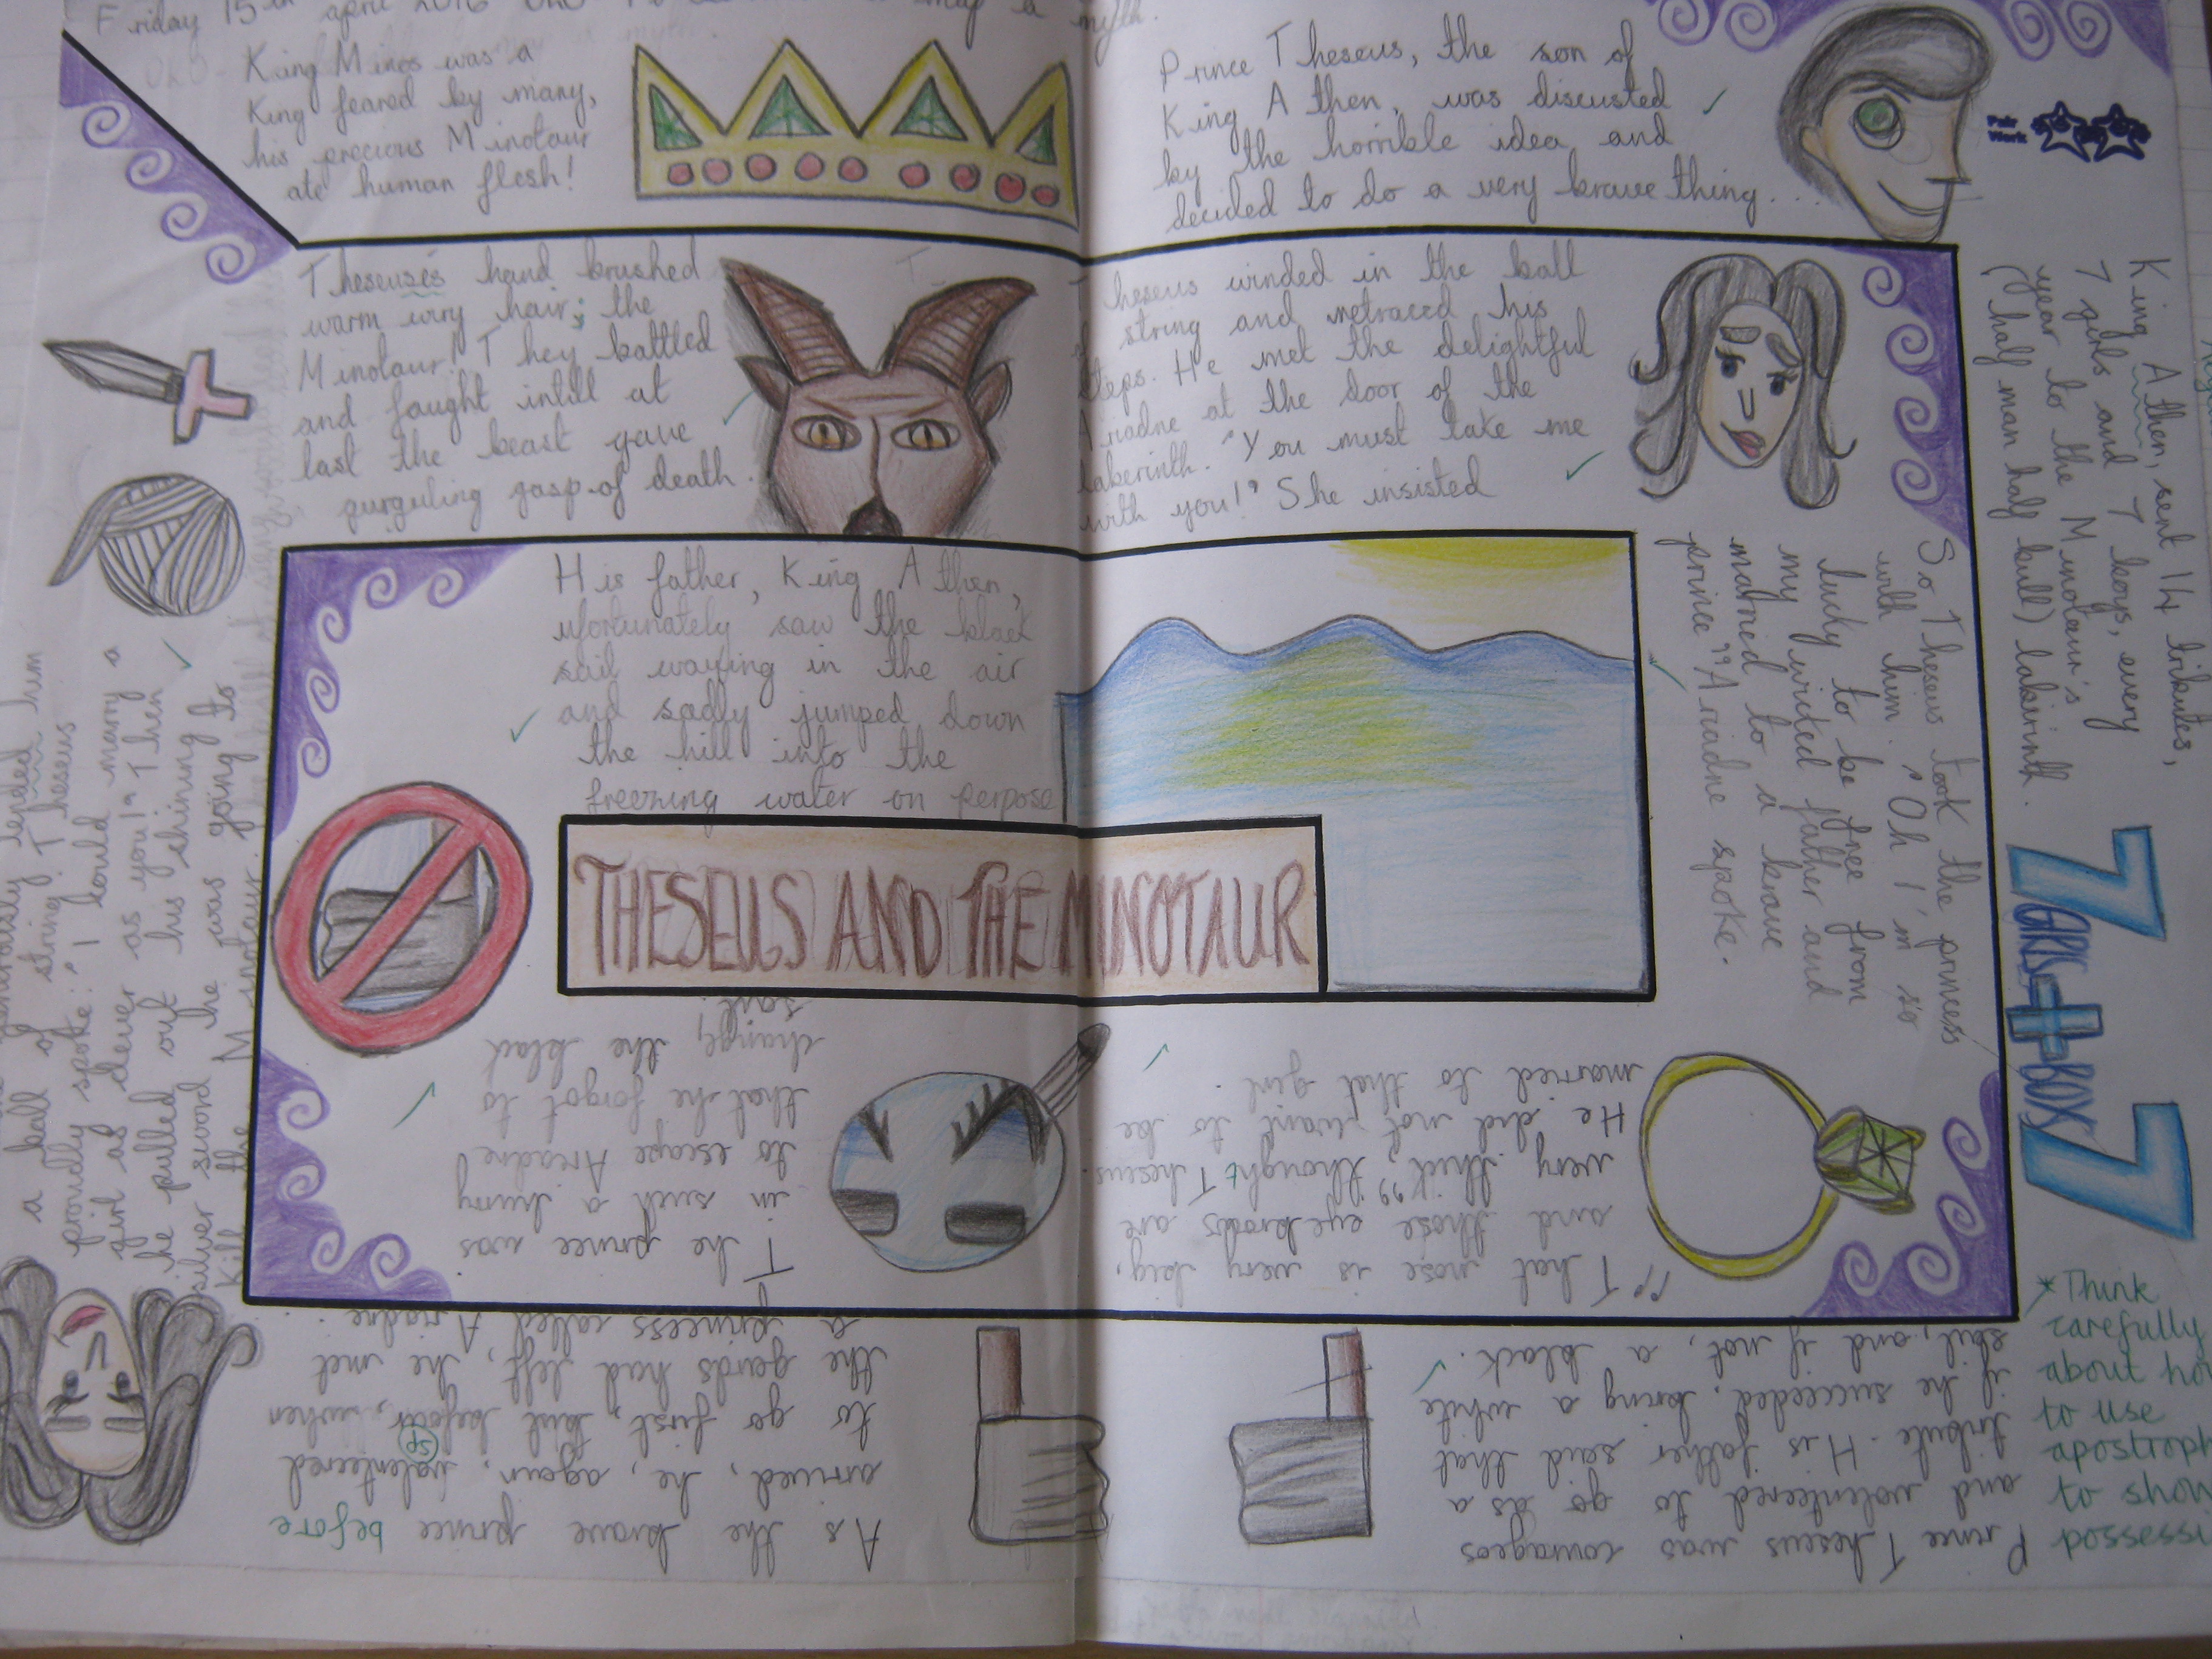 Friday 15th april 2016
a myth.
King Minos was a
King feared by many,
his precious Minotaur
ate human flesh!
Prince Theseus, the son of
King Athen, was discusted
by the horrible idea and
decided to do a very brave thing...
Pair
Work
King Athen, sent 14 tributes,
7 girls and 7 boys, every
year to the Minotaur's
(half man half bull) laberinth.
7
+
7
Prince Theseus was courageos
and valenteered to go as a
tribute. His father said that
if he succeeded, bring a white
sail, and if not, a black.
As the brave prince before
arrived, he, again, valenteered
sp
to go first, but before, when
the gards had left, he met
a princess called Ariadne.
lended him
a ball of string. Theseus
proudly spoke: "I could marry a
girl as clever as you!" Then
he pulled out his shining
silver sword he was going to
kill the Minotaur
Theseuses hand brushed
warm wiry hair; the
Minotaur! They battled
and faught intill at
last the beast gave
gurguling gasp of death.
Theseus winded in the ball
of string and retraced his
steps. He met the delightful
Ariadne at the door of the
laberinth. "You must take me
with you!" She insisted
So Theseus took the prinsess
with him. "Oh I'm so
lucky to be free from
my wicked father and
married to a brave
prince" Ariadne spoke.
"That nose is very big,
and those eyebrods are
very thick" thought Theseus.
He did not want to be
married to that girl.
The prince was
in such a hurry
to escape Ariadne
that he forgot to
change, the black
sail.
His father, King Athen,
ufortunately saw the black
sail wayfing in the air
and sadly jumped down
the hill into the
freezing water on perpose
THESEUS AND THE MINOTAUR
*Think
carefully
about
to use
to show